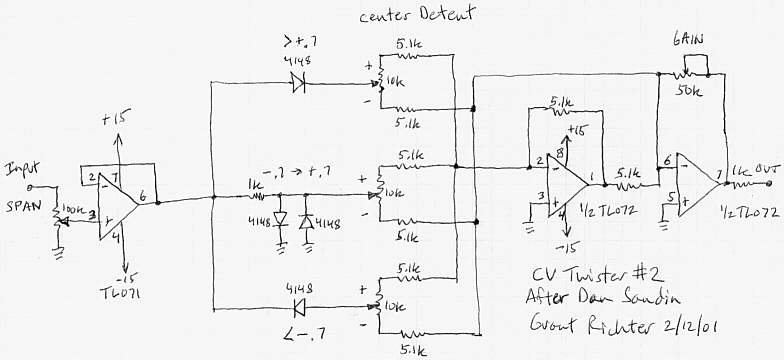 center Detent
>+.7
4148
5.1k
+
10k
-
5.1k
GAIN
50k
+15
Input
SPAN
100k
2
7
6
3
4
-
+
-15
TL071
-.7 → +.7
1k
4148
4148
5.1k
+
10k
-
5.1k
5.1k
+15
2
8
1
3
4
-
+
-15
1/2 TL072
5.1k
6
7
5
-
+
1k OUT
1/2 TL072
4148
<-.7
5.1k
+
10k
-
5.1k
CV Twister #2
After Dan Sandin
Grant Richter 2/12/01